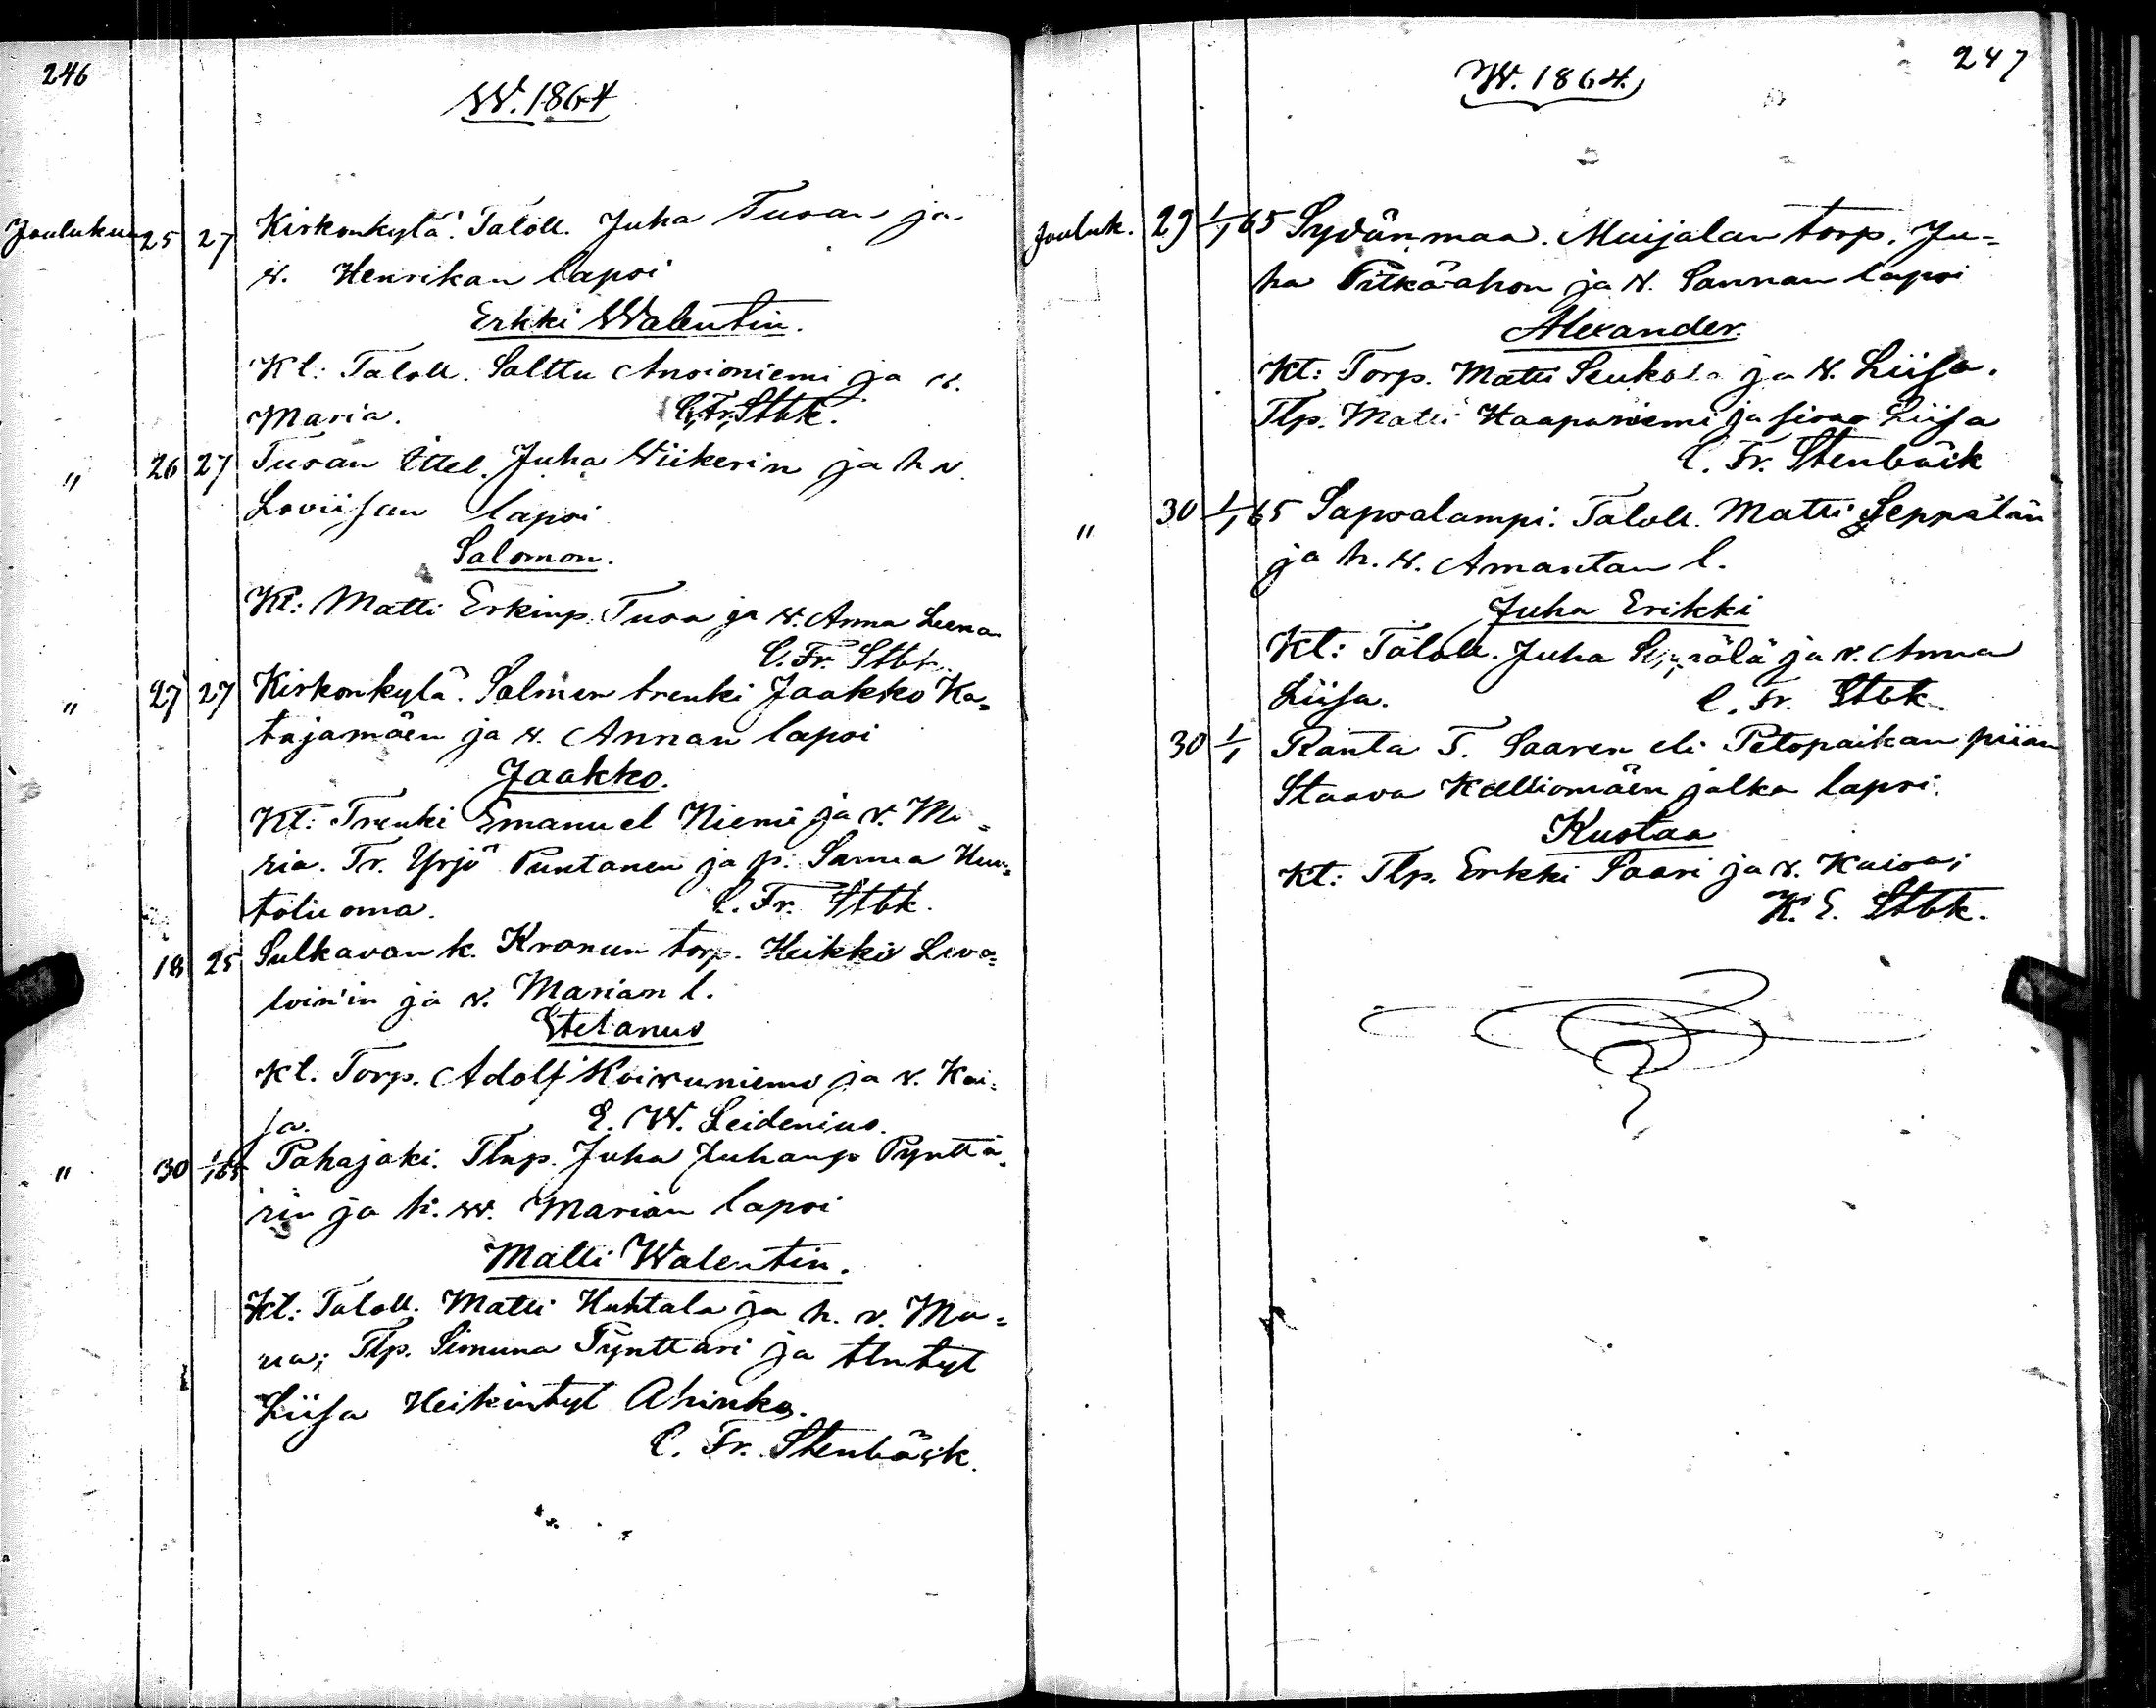 246
W. 1864
Joulukuu 25 27 Kirkonkylä. Taloll. Juha Tusan ja
v. Henrikan lapsi
Erkki Walentin.
Kt: Taloll. Salttu Ansioniemi ja v.
Maria. C. Fr. Stbk.
" 26 27 Tusan Ittel. Juha Wiikerin ja h v.
Loviisan lapsi
Salomon.
Kt: Matti Erkinp. Tusa ja v. Anna Leena
C. Fr. Stbk.
" 27 27 Kirkonkylä. Salmen trenki Jaakko Ka=
tajamäen ja v. Annan lapsi
Jaakko.
Kt: Trenki Emanuel Niemi ja v. Ma=
ria. Tr. Yrjö Puntanen ja p. Sanna Huu=
toluoma. C. Fr. Stbk.
18 25 Sulkavan k. Kronun torp. Heikki Leva=
loin'in ja v. Marian l.
Stefanus
Kt. Torp. Adolf Koivuniemi ja v. Kai=
sa. E. W. Leidenius.
" 30 1/1 65 Pahajaki. Tlnp. Juha Juhanp Pynttä=
rin ja h. w. Marian lapsi
Matti Walentin.
Kt: Taloll. Matti Huhtala ja h. v. Ma=
ria; Tlp. Simuna Pynttäri ja tlntyt
Liisa Heikintyt Ahinko.
C. Fr. Stenbäck.
247
W. 1864.
Jouluk. 29 1/1 65 Sydänmaa. Maijalan torp. Ju=
ha Pitkä-ahon ja v. Sannan lapsi
Alexander.
Kt: Torp. Matti ja v. Liisa.
Tlp. Matti Haapaniemi ja sisar Liisa
C. Fr. Stenbäck
" 30 1/1 65 Sapsalampi. Taloll. Matti Seppälän
ja h. v. Amantan l.
Juha Erikki
Kt: Taloll. Juha Seppälä ja v. Anna
Liisa. C. Fr. Stbk.
30 1/1 Ranta T. Saaren eli Petopaikan piian
Staava Kalliomäen jalka lapsi.
Kustaa
Kt: Tlp. Erkki Saari ja v. Kaisa;
K. E. Stbk.